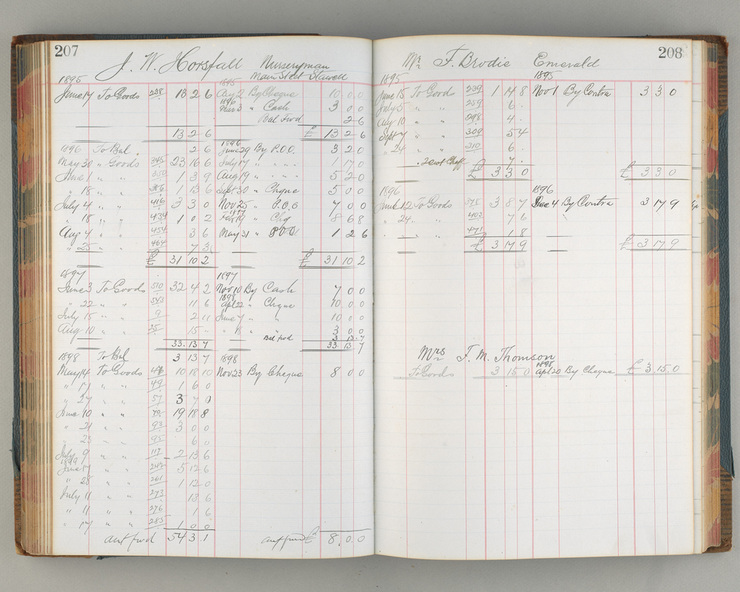 207
J. W. Horsfall Nurseryman
Main St Stawell
1895 1895
June 14 To Goods 238 13 2 6 Aug 12 By Cheque 10 0 0
1896
" Cash 3 0 0
Bal Fwd 2 6
13 2 6 £ 13 2 6
1896 To Bal 2 6 1896 June 29 By P.O.O. 3 2 0
May 30 " Goods 23 16 6 July 17 " 1 7 0
June 1 " 1 3 9 Aug 19 " 5 2 0
" 18 " 1 13 6 Sept 30 " Cheque 5 0 0
July 4 " " 3 3 0 Nov 25 " P.O.O 7 0 0
18 " " 1 0 2 " Chq 8 6 8
Aug 4 " " 3 6 May 31 " P.O.O 1 2 6
" 25 " 7 3
£ 31 10 2 £ 31 10 2
1897 1897
June 3 To Goods 510 32 4 2 Nov 10 By Cash 7 0 0
" 22 " " 11 6 1898 Apl 22 " Cheque 10 0 0
July 15 " " 9 2 11 June 7 " " 10 0 0
Aug 10 " " 15 - " 18 " " 3 0 0
Bal fwd 3 13 7
33 13 7 33 13 7
1898 To Bal 3 13 7 1898
May 14 To Goods 10 18 10 Nov 23 By Cheque 8 0 0
" 17 " " 49 1 6 0
" 24 " " 57 3 7 0
June 10 " " 19 18 8
" 21 " " 93 3 0 0
" 23 " " 95 6 0
July 9 " " 2 13 6
1899
June 17 " " 5 12 6
" 28 " " 261 1 12 0
July 11 " " 273 18 6
" 11 " " 276 1 6
" 17 " " 283 1 0 0
amt fwd 54 3 1 amt fwd £ 8 0 0
208
Mr F. Brodie Emerald
1895 1895
June 15 To Good 239 1 4 8 Nov 1 By Contra 3 3 0
July 5 " " 259 6
Aug 10 " " 298 4
Sept 7 " " 5 4
" 24 " " 6
7
£ 3 3 0 £ 3 3 0
1896 1896
June 12 To Goods 3 8 7 June 4 By Contra 3 17 9
" 24 " " 7 6
1 8
£ 3 17 9 £ 3 17 9
Mrs F. M. Thomson
To Goods 3 15 0 1898 Apl 20 By Cheque £ 3 15 0